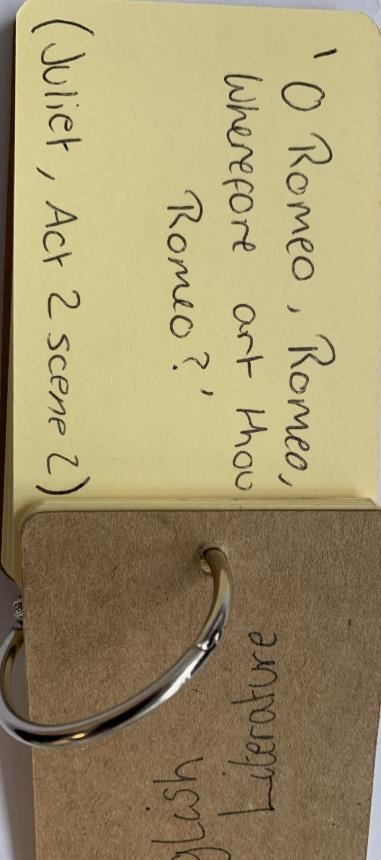 'O Romeo, Romeo,
Wherefore art thou
Romeo?'
(Juliet, Act 2 scene 2)
Literature